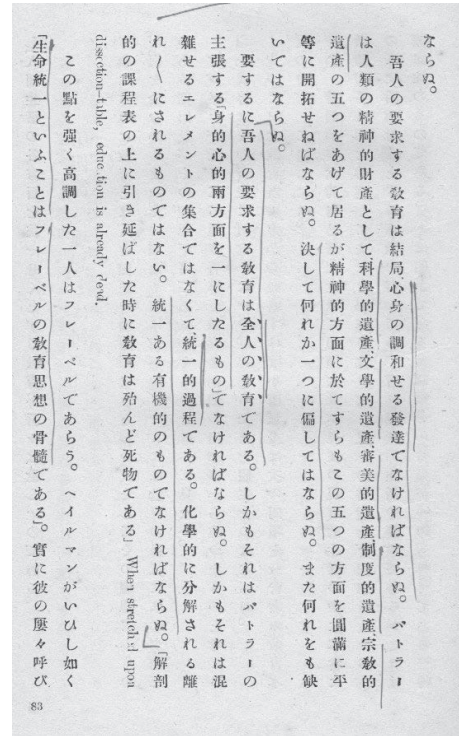 ならぬ。
吾人の要求する敎育は結局、心身の調和せる發達でなければならぬ。バトラー
は人類の精神的財產として、科學的遺產、文學的遺產、審美的遺產、制度的遺產、宗敎的
遺產の五つをあげて居るが、精神的方面に於てすらもこの五つの方面を圓滿に平
等に開拓せねばならぬ。決して何れか一つに偏してはならぬ。また何れをも缺
いてはならぬ。
要するに吾人の要求する敎育は全人の敎育である。しかもそれはバトラーの
主張する「身的心的兩方面を一にしたるもの」でなければならぬ。しかもそれは混
雜せるエレメントの集合ではなくて統一的過程である。化學的に分解される離
れ〱にされるものではない。統一ある有機的のものでなければならぬ。「解剖
的の課程表の上に引き延ばした時に敎育は殆んど死物である」When stretched upon
dissection-table, education is already dead.
この點を强く高調した一人はフレーベルであらう。ヘイルマンがいひし如く
「生命統一といふことはフレーベルの敎育思想の骨髓である」。實に彼の屢々呼び
83